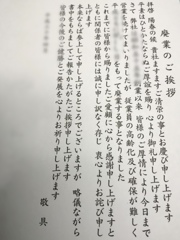 廃業のご挨拶
拝啓 陽春の候 貴社ますますご清栄の事とお慶び申し上げます
平素はひとかたならぬご厚誼を賜り 心より御礼申し上げます
さて 弊社 業以来 皆様のご厚情により今日まで
営業を続けてまいりましたが 従業員の高齢化及び確保が難しく
をもって廃業する事となりました
これまでに皆様から賜りましたご愛顧に心から感謝申し上げますと
ともに関係者の皆様には誠に申し訳なく存じ 衷心よりお詫び申し
上げます
本来ならば拝上して申し上げるところでございますが 略儀ながら
書中をもちましてご報告かたがたご挨拶申し上げます
皆様の今後のご健勝とご発展を心よりお祈り申し上げます
敬具